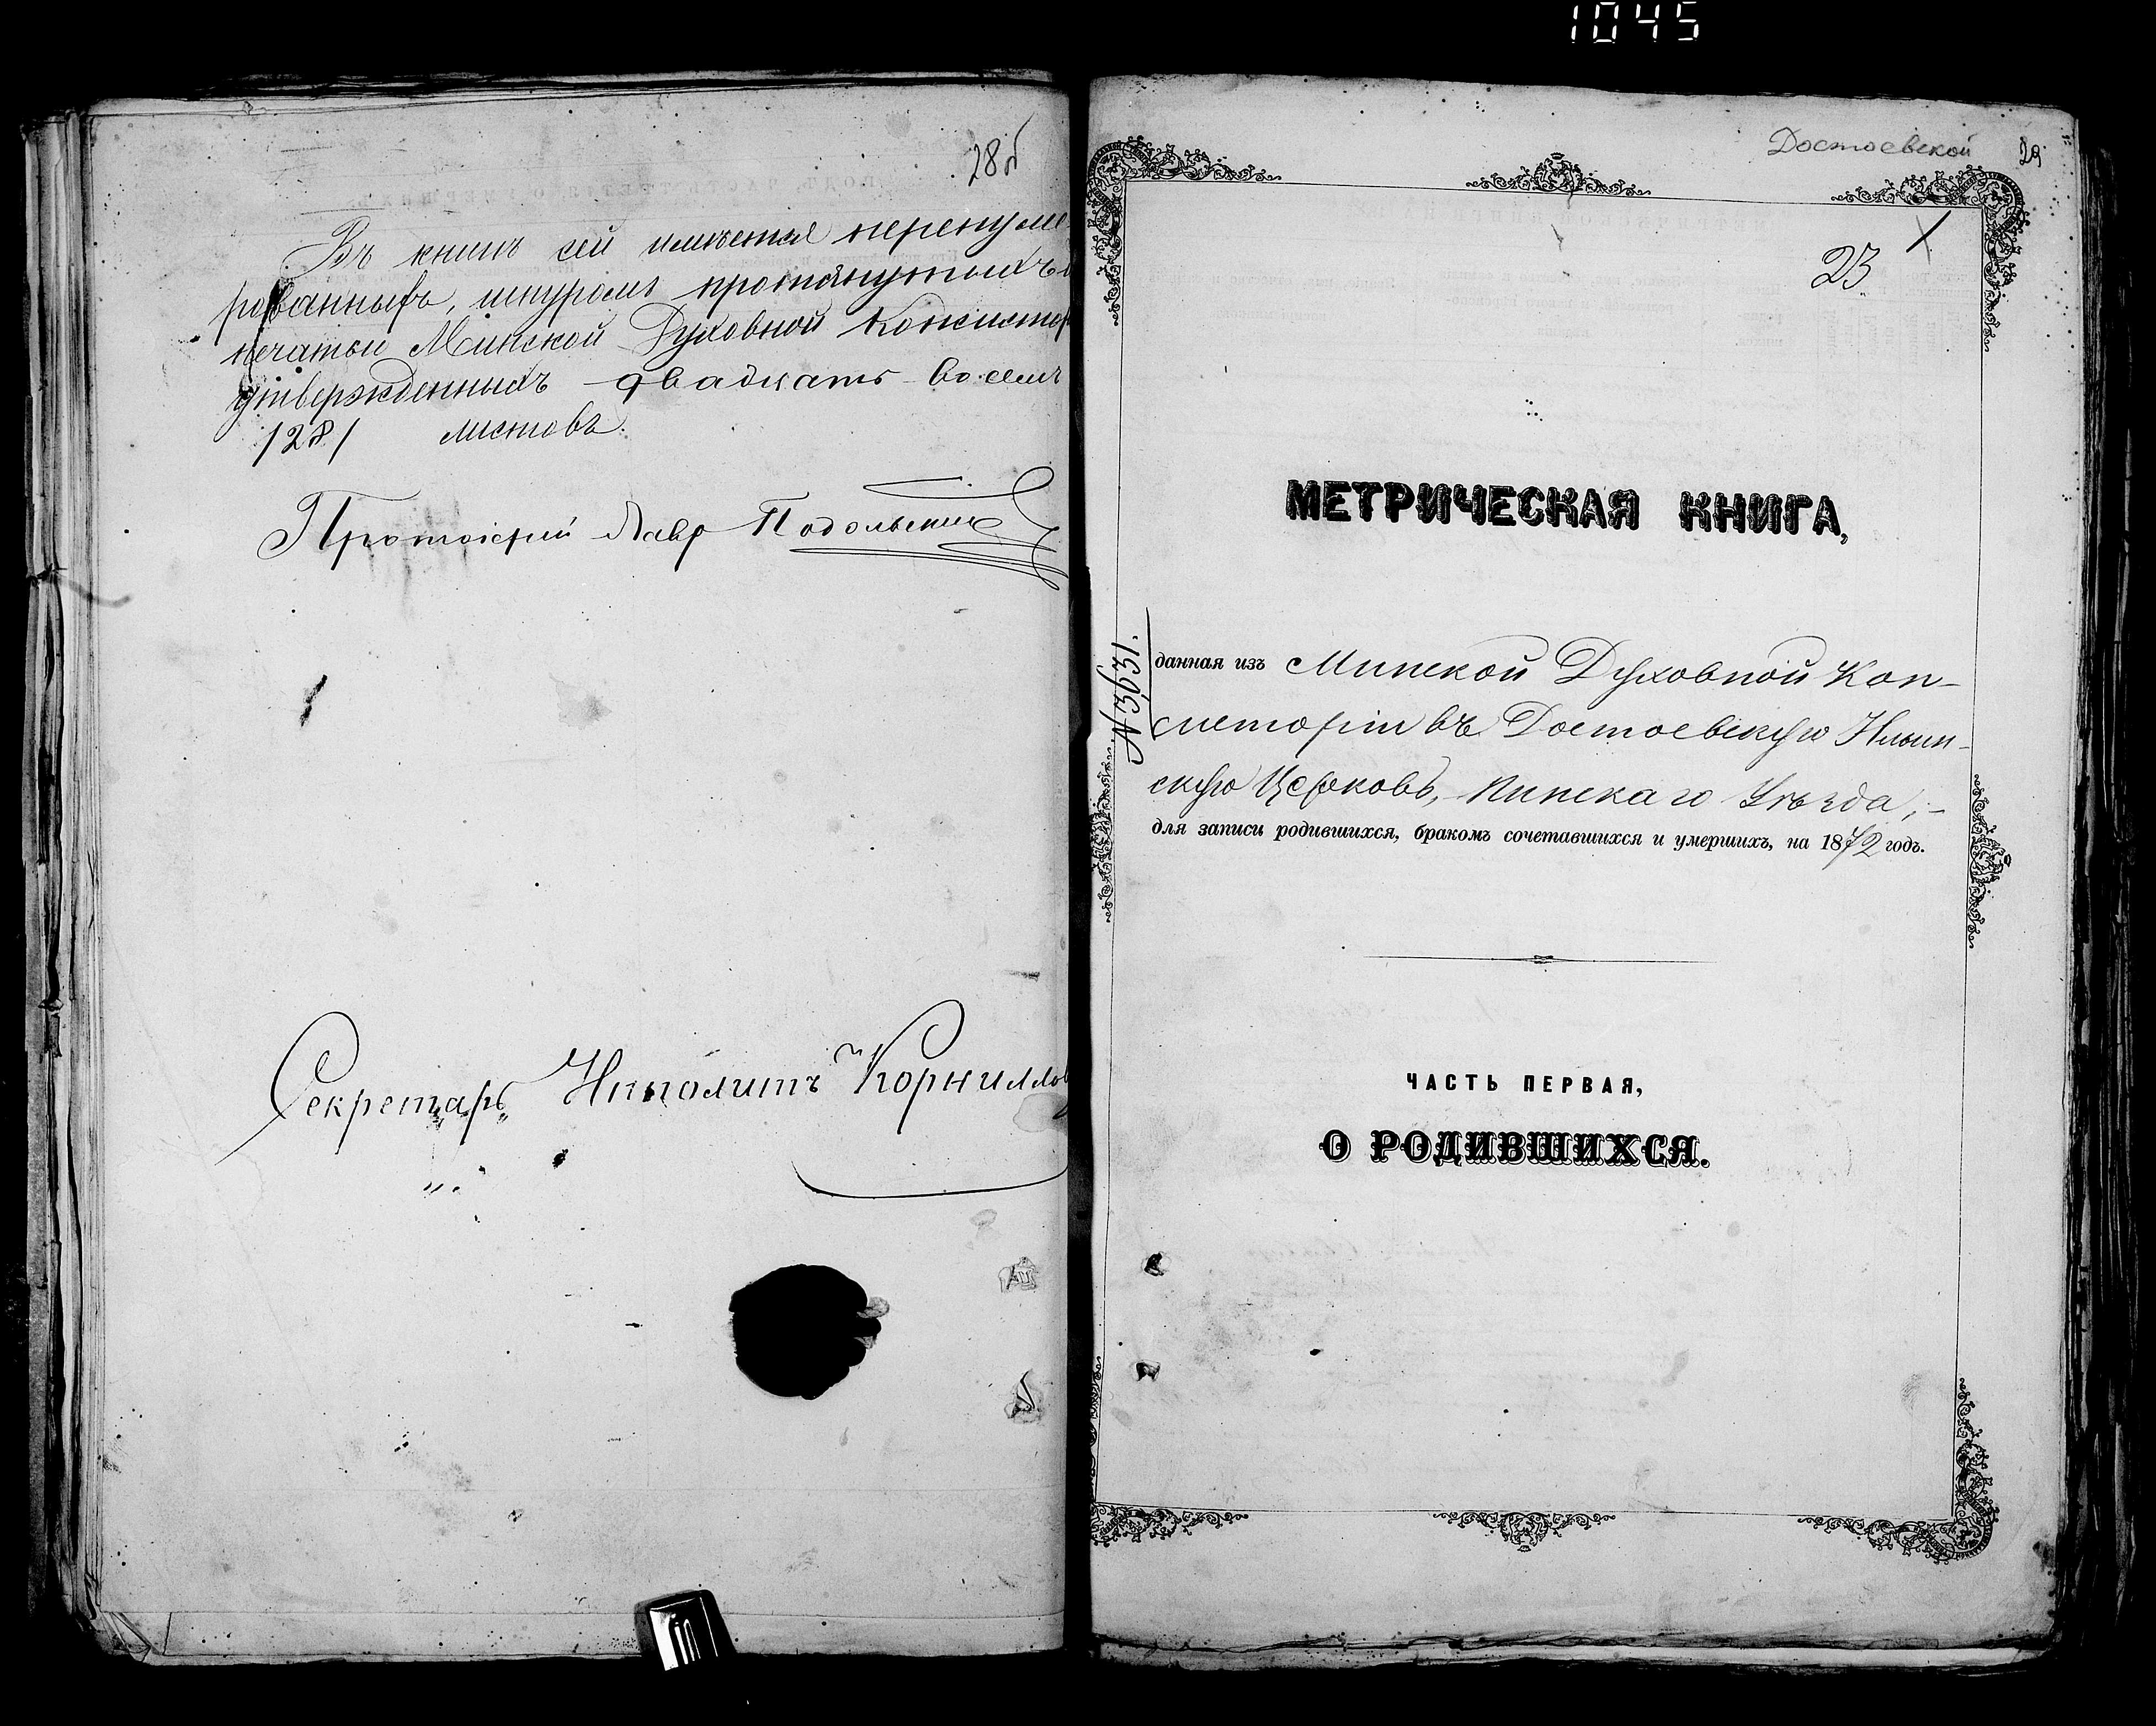 1045
28б
Въ книгѣ сей имѣется перенуме
рованныхъ, шнуромъ протянутыхъ и
печатью Минской Духовной Консистор
утвержденныхъ двадцать восемь
/28/ листовъ.
Протоіерей Лавр Подольскій
Секретарь Ипполитъ Корнилло
Достоевской
29
23
1
МЕТРИЧЕСКАЯ КНИГА,
№ 3631.
данная изъ Минской Духовной Кон-
систоріи въ Достоевскую Ильин-
скую Церковь, Пинскаго Уѣзда,
для записи родившихся, бракомъ сочетавшихся и умершихъ, на 1872 годъ.
ЧАСТЬ ПЕРВАЯ,
О РОДИВШИХСЯ.